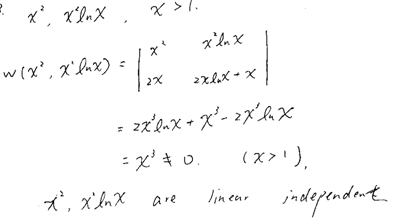 x², x²lnx, x>1.
W(x², x²lnx) = | x² x²lnx |
| 2x 2xlnx + x |
= 2x³lnx + x³ - 2x³lnx
= x³ ≠ 0. (x>1),
x², x²lnx are linear independent